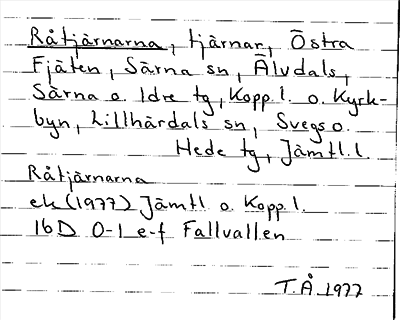 Råtjärnarna, tjärnar, Östra
Fjäten, Särna sn, Älvdals,
Särna o. Idre tg, Kopp. l. o. Kyrk-
byn, Lillhärdals sn, Svegs o.
Hede tg, Jämtl. l.
Råtjärnarna
ek (1977) Jämtl o. Kopp l.
16D 0-1 e-f Fallvallen
T.Å 1977